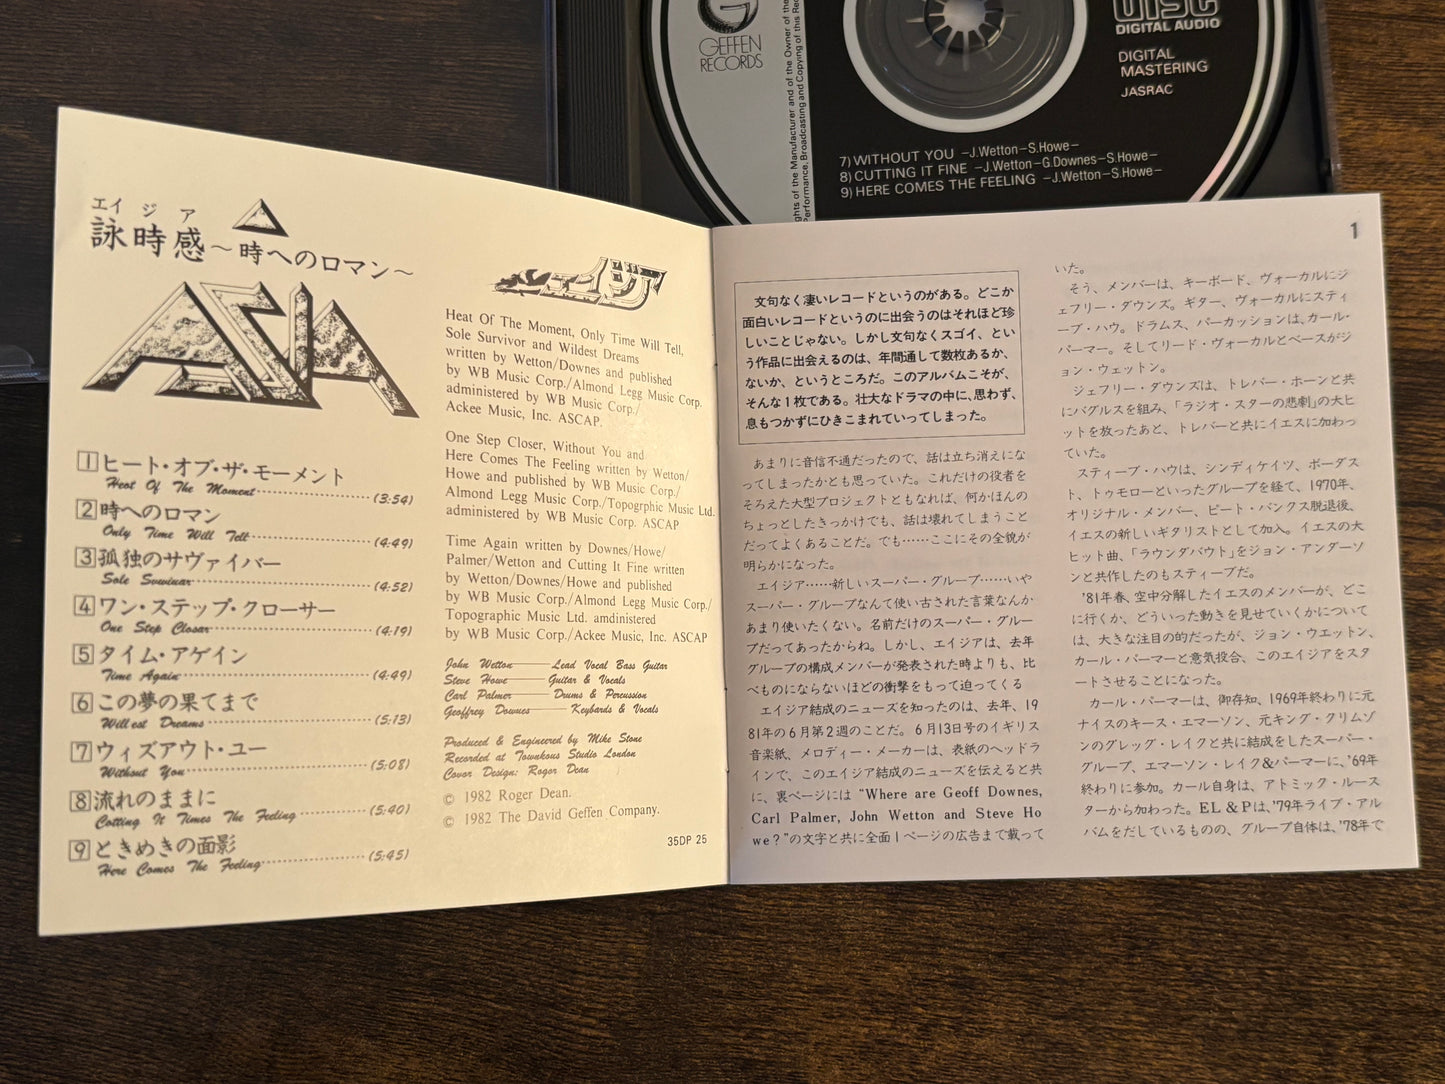 GEFFEN
RECORDS
DIGITAL AUDIO
DIGITAL
MASTERING
JASRAC
7) WITHOUT YOU -J.Wetton-S.Howe-
8) CUTTING IT FINE -J.Wetton-G.Downes-S.Howe-
9) HERE COMES THE FEELING -J.Wetton-S.Howe-
エイジア
詠時感〜時へのロマン〜
ASIA
1 ヒート・オブ・ザ・モーメント
Heat Of The Moment (3:54)
2 時へのロマン
Only Time Will Tell (4:49)
3 孤独のサヴァイバー
Sole Suvivar (4:52)
4 ワン・ステップ・クローサー
One Step Closar (4:19)
5 タイム・アゲイン
Time Again (4:49)
6 この夢の果てまで
Will est Dreams (5:13)
7 ウィズアウト・ユー
Without You (5:08)
8 流れのままに
Cotting It Times The Feeling (5:40)
9 ときめきの面影
Here Comes The Feeling (5:45)
エイジア
Heat Of The Moment, Only Time Will Tell,
Sole Survivor and Wildest Dreams
written by Wetton/Downes and published
by WB Music Corp./Almond Legg Music Corp.
administered by WB Music Corp./
Ackee Music, Inc. ASCAP.
One Step Closer, Without You and
Here Comes The Feeling written by Wetton/
Howe and published by WB Music Corp./
Almond Legg Music Corp./Topogrphic Music Ltd.
administered by WB Music Corp. ASCAP
Time Again written by Downes/Howe/
Palmer/Wetton and Cutting It Fine written
by Wetton/Downes/Howe and published
by WB Music Corp./Almond Legg Music Corp./
Topographic Music Ltd. amdinistered
by WB Music Corp./Ackee Music, Inc. ASCAP
John Wetton Lead Vocal Bass Guitar
Steve Howe Guitar & Vocals
Carl Palmer Drums & Percussion
Geoffrey Downes Keybards & Vocals
Produced & Engineered by Mike Stone
Recorded at Townkous Studio London
Covor Design: Roger Dean
© 1982 Roger Dean.
© 1982 The David Geffen Company.
35DP 25
1
文句なく凄いレコードというのがある。どこか
面白いレコードというのに出会うのはそれほど珍
しいことじゃない。しかし文句なくスゴイ、とい
う作品に出会えるのは、年間通して数枚あるか、
ないか、というところだ。このアルバムこそが、
そんな1枚である。壮大なドラマの中に、思わず、
息もつかずにひきこまれていってしまった。
あまりに音信不通だったので、話は立ち消えにな
ってしまったかとも思っていた。これだけの役者を
そろえた大型プロジェクトともなれば、何かほんの
ちょっとしたきっかけでも、話は壊れてしまうこと
だってよくあることだ。でも……ここにその全貌が
明らかになった。
エイジア……新しいスーパー・グループ……いや
スーパー・グループなんて使い古された言葉なんか
あまり使いたくない。名前だけのスーパー・グルー
プだってあったからね。しかし、エイジアは、去年
グループの構成メンバーが発表された時よりも、比
べものにならないほどの衝撃をもって迫ってくる
エイジア結成のニュースを知ったのは、去年、19
81年の6月第2週のことだ。6月13日号のイギリス
音楽紙、メロディー・メーカーは、表紙のヘッドラ
インで、このエイジア結成のニュースを伝えると共
に、裏ページには“Where are Geoff Downes,
Carl Palmer, John Wetton and Steve Ho
we?”の文字と共に全面1ページの広告まで載って
いた。
そう、メンバーは、キーボード、ヴォーカルにジ
ェフリー・ダウンズ。ギター、ヴォーカルにスティ
ーブ・ハウ。ドラムス、パーカッションは、カール・
パーマー。そしてリード・ヴォーカルとベースがジ
ョン・ウェットン。
ジェフリー・ダウンズは、トレバー・ホーンと共
にバグルスを組み、「ラジオ・スターの悲劇」の大ヒ
ットを放ったあと、トレバーと共にイエスに加わっ
ていた。
スティーブ・ハウは、シンディケイツ、ボーダス
ト、トゥモローといったグループを経て、1970年、
オリジナル・メンバー、ピート・バンクス脱退後、
イエスの新しいギタリストとして加入。イエスの大
ヒット曲、「ラウンダバウト」をジョン・アンダーソ
ンと共作したのもスティーブだ。
'81年春、空中分解したイエスのメンバーが、どこ
に行くか、どういった動きを見せていくかについて
は、大きな注目の的だったが、ジョン・ウエットン、
カール・パーマーと意気投合、このエイジアをスタ
ートさせることになった。
カール・パーマーは、御存知、1969年終わりに元
ナイスのキース・エマーソン、元キング・クリムゾ
ンのグレッグ・レイクと共に結成をしたスーパー・
グループ、エマーソン・レイク&パーマーに、'69年
終わりに参加。カール自身は、アトミック・ルース
ターから加わった。EL&Pは、'79年ライブ・アル
バムをだしているものの、グループ自体は、'78年で